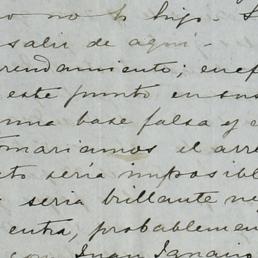 o no lo hijo.
salir de aqui.-
rendamiento; en ef
este punto en sus
una base falsa y e
mariamos el arre
to sería imposibl
seria brillante ne
entra, probablemen
con Juan Ignacio